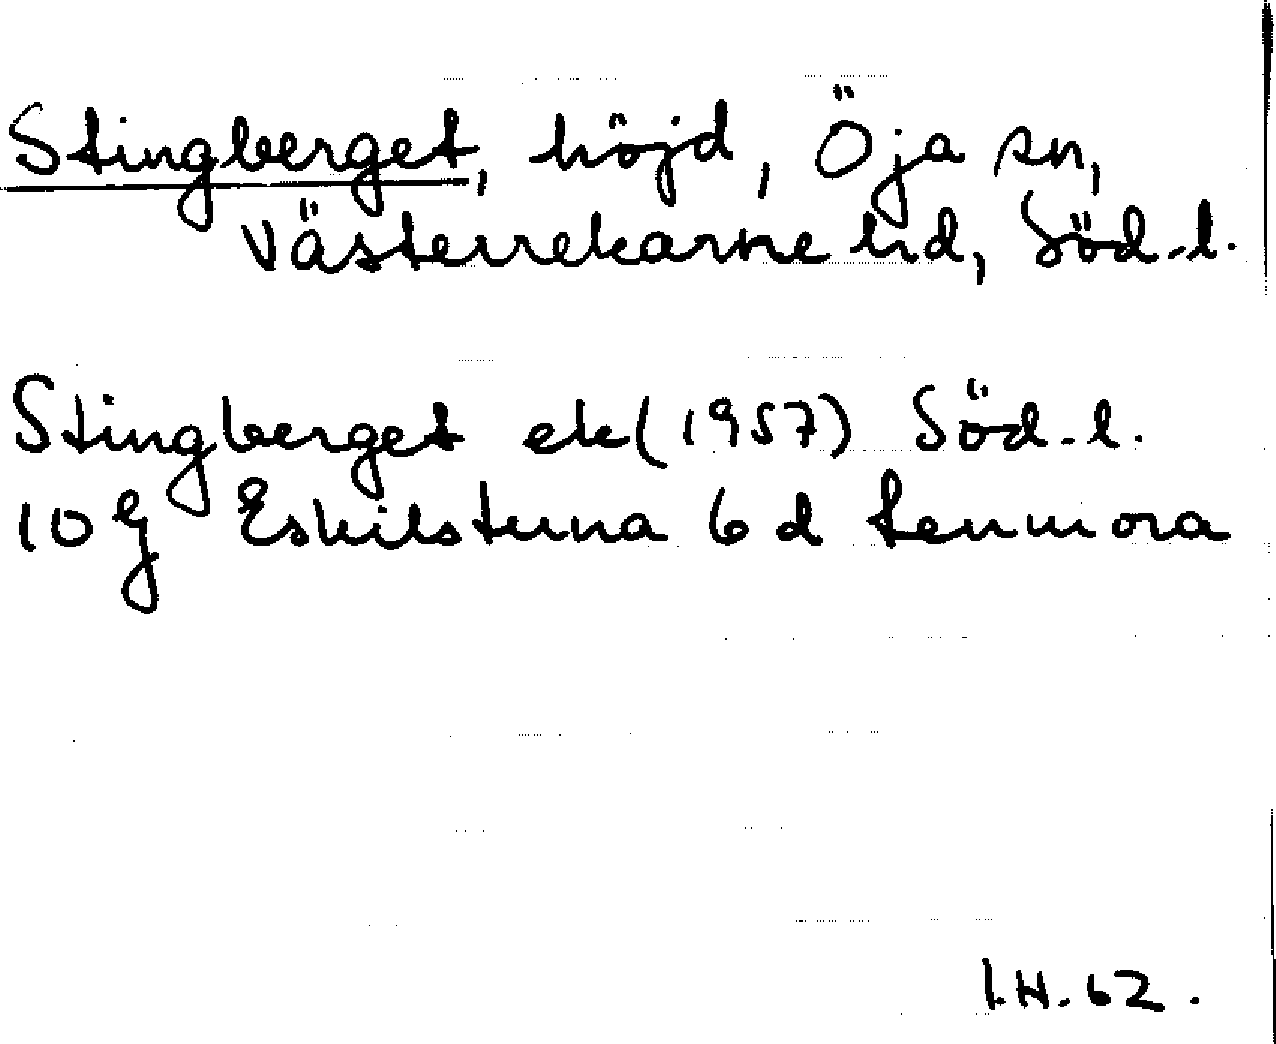 Stingberget, höjd, Öja sn,
Västerrekarne hd, Söd.l.
Stingberget ek (1957) Söd.l.
10 g Eskilstuna 6 d Lenmora
I.H. 62.